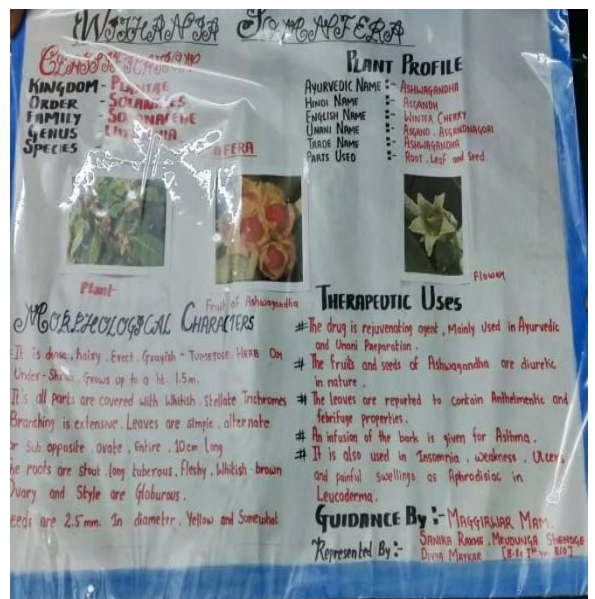 WITHANIA SOMNIFERA
CLASSIFICATION
KINGDOM - PLANTAE
ORDER - SOLANALES
FAMILY - SOLANACEAE
GENUS -
SPECIES -
PLANT PROFILE
AYURVEDIC NAME :- ASHWAGANDHA
HINDI NAME :- ASGANDH
ENGLISH NAME :- WINTER CHERRY
UNANI NAME :- ASGAND, ASGANDNAGORI
TRADE NAME :- ASHWAGANDHA
PARTS USED :- ROOT, Leaf and Seed
Plant
Fruit of Ashwagandha
Flower
MORPHOLOGICAL CHARACTERS
It is dense, hairy, Erect, Grayish - TUMETOSE HERB OR
Under-Shrub, Grows up to a ht. 1.5m.
It's all parts are covered with Whitish, Stellate Trichromes
Branching is extensive. Leaves are simple, alternate
or Sub opposite, ovate, Entire, 10cm long
he roots are stout, long tuberous, Fleshy, Whitish-brown
Ovary and Style are Globurous.
eeds are 2.5mm. In diameter, Yellow and Somewhat
THERAPEUTIC USES
# The drug is rejuvenating agent, Mainly Used in Ayurvedic
and Unani Preparation.
# The fruits and seeds of Ashwagandha are diuretic
in nature.
# The leaves are reported to contain Anthelmentic and
febrifuge properties.
# An infusion of the bark is given for Asthma.
# It is also used in Insomnia, weakness, Ulcers
and painful swellings as Aphrodisiac in
Leucoderma.
GUIDANCE BY :- MAGGIRWAR MAM.
Represented By :- SANIKA RAKHE, MRUDUNGA SHENDGE
DIVYA MAYKAR